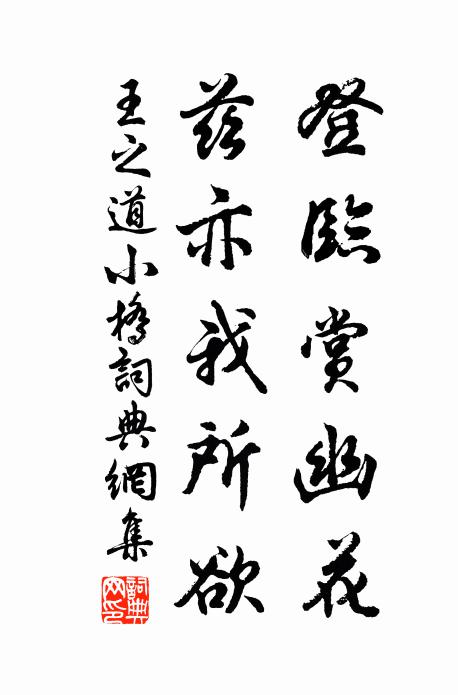 登臨賞幽花
茲亦我所欲
王之道小橋詞典網集
詞典網印